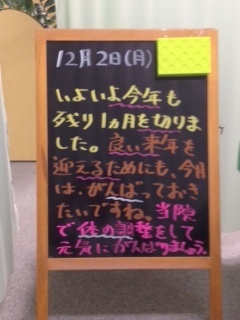 12月2日(月)
いよいよ今年も
残り1ヵ月を切りま
した。良い来年を
迎えるためにも、今月
は、がんばっておき
たいですね。当院
で体の調整をして
元気にがんばりましょう。